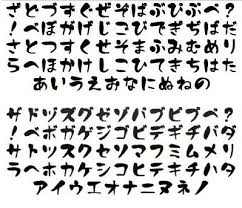 ざどづずぐぜぞばぶびぷべ?
!べぼがげじごびでぎぢばだ
さとつすくせそまふみむめり
らへほかけしこひてきちはた
あいうえおなにぬねの
ザドヅズグゼゾバブピプベ?
!ベボガゲジゴビデギヂバダ
サトツスクセソマフミムメリ
ラヘホカケシコヒテキチハタ
アイウエオナニヌネノ